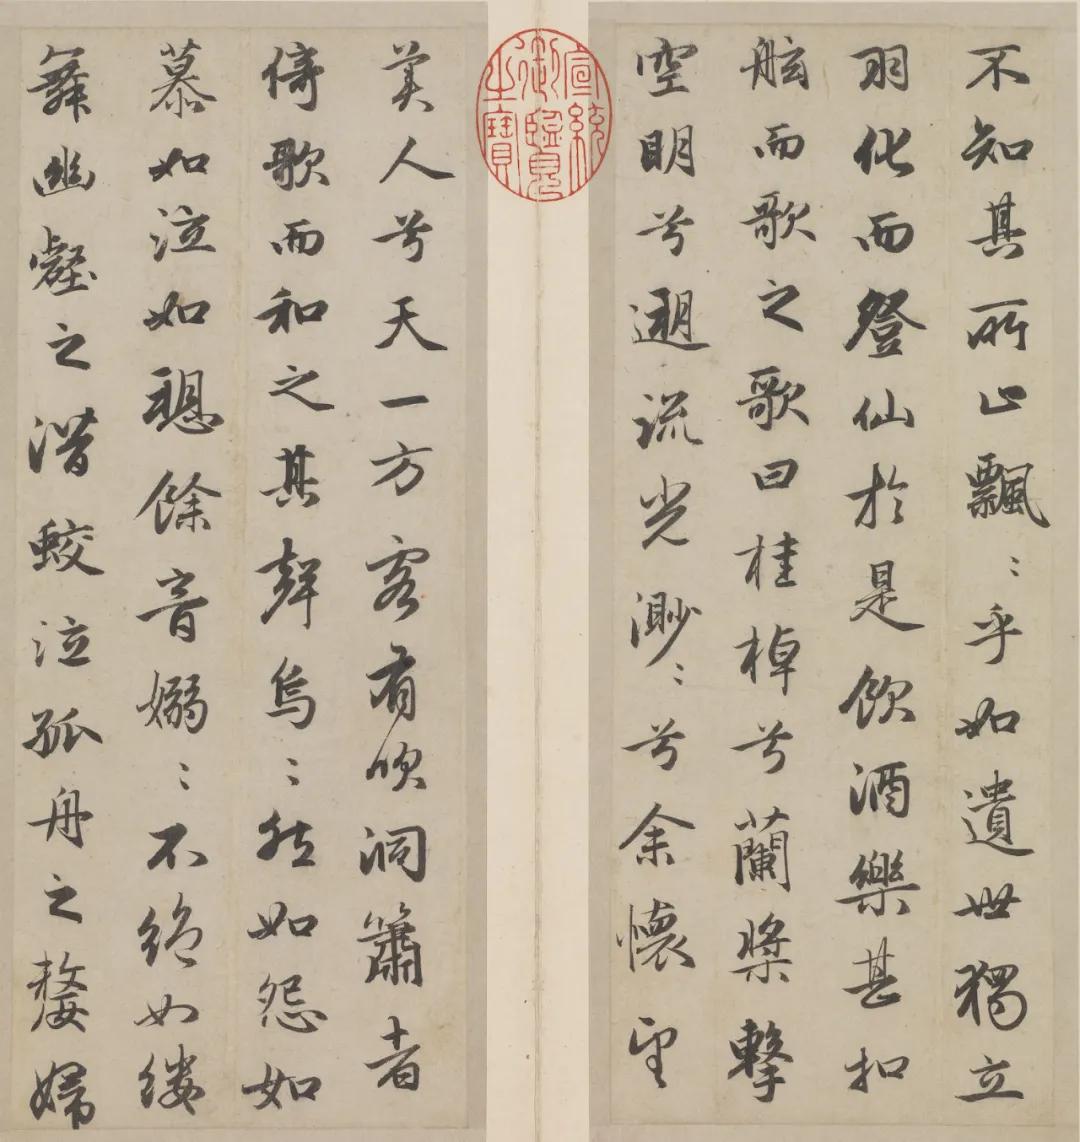 不知其所止飄〻乎如遺世獨立
羽化而登仙於是飲酒樂甚扣
舷而歌之歌曰桂棹兮蘭槳擊
空明兮遡流光渺〻兮余懷望
美人兮天一方客有吹洞簫者
倚歌而和之其聲烏〻然如怨如
慕如泣如聽餘音嫋〻不絕如縷
舞幽壑之潛蛟泣孤舟之嫠婦
宣統御覽之寶